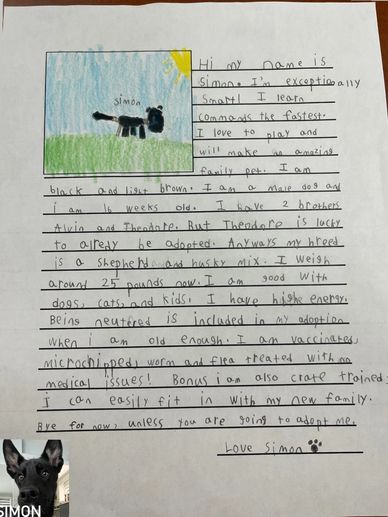 simon
Hi my name is
Simon. I'm exceptionally
Smart! I learn
commands the fastest.
I love to play and
will make an amazing
family pet. I am
black and light brown. I am a male dog and
i am 16 weeks old. I have 2 brothers
Alvin and Theodore. But Theodore is lucky
to alredy be adopted. Anyways my breed
is a shepherd and husky mix. I weigh
around 25 pounds now. I am good with
dogs, cats, and kids. I have highe energy.
Being neutered is included in my adoption
when i am old enough. I am vaccinated,
microchipped, worm and flea treated with no
medical issues! Bonus i am also crate trained.
i can easily fit in with my new family.
Bye for now, unless you are going to adopt me.
Love Simon
SIMON